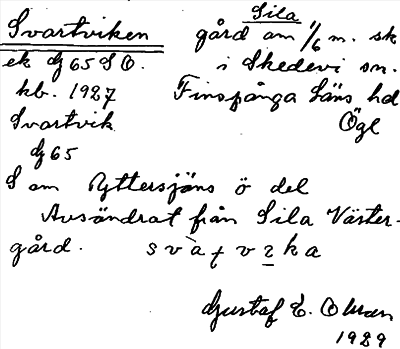 Svartviken
Sila
gård am 1/6 m. sk
ek dj 65 S O.
i Skedevi sn.
kb. 1927
Finspånga Läns hd
Svartvik
Ögl
dj 65
S om Yttersjöns ö del
Avsöndrat från Sila Väster-
gård.
Gustaf E. Olsson
1929